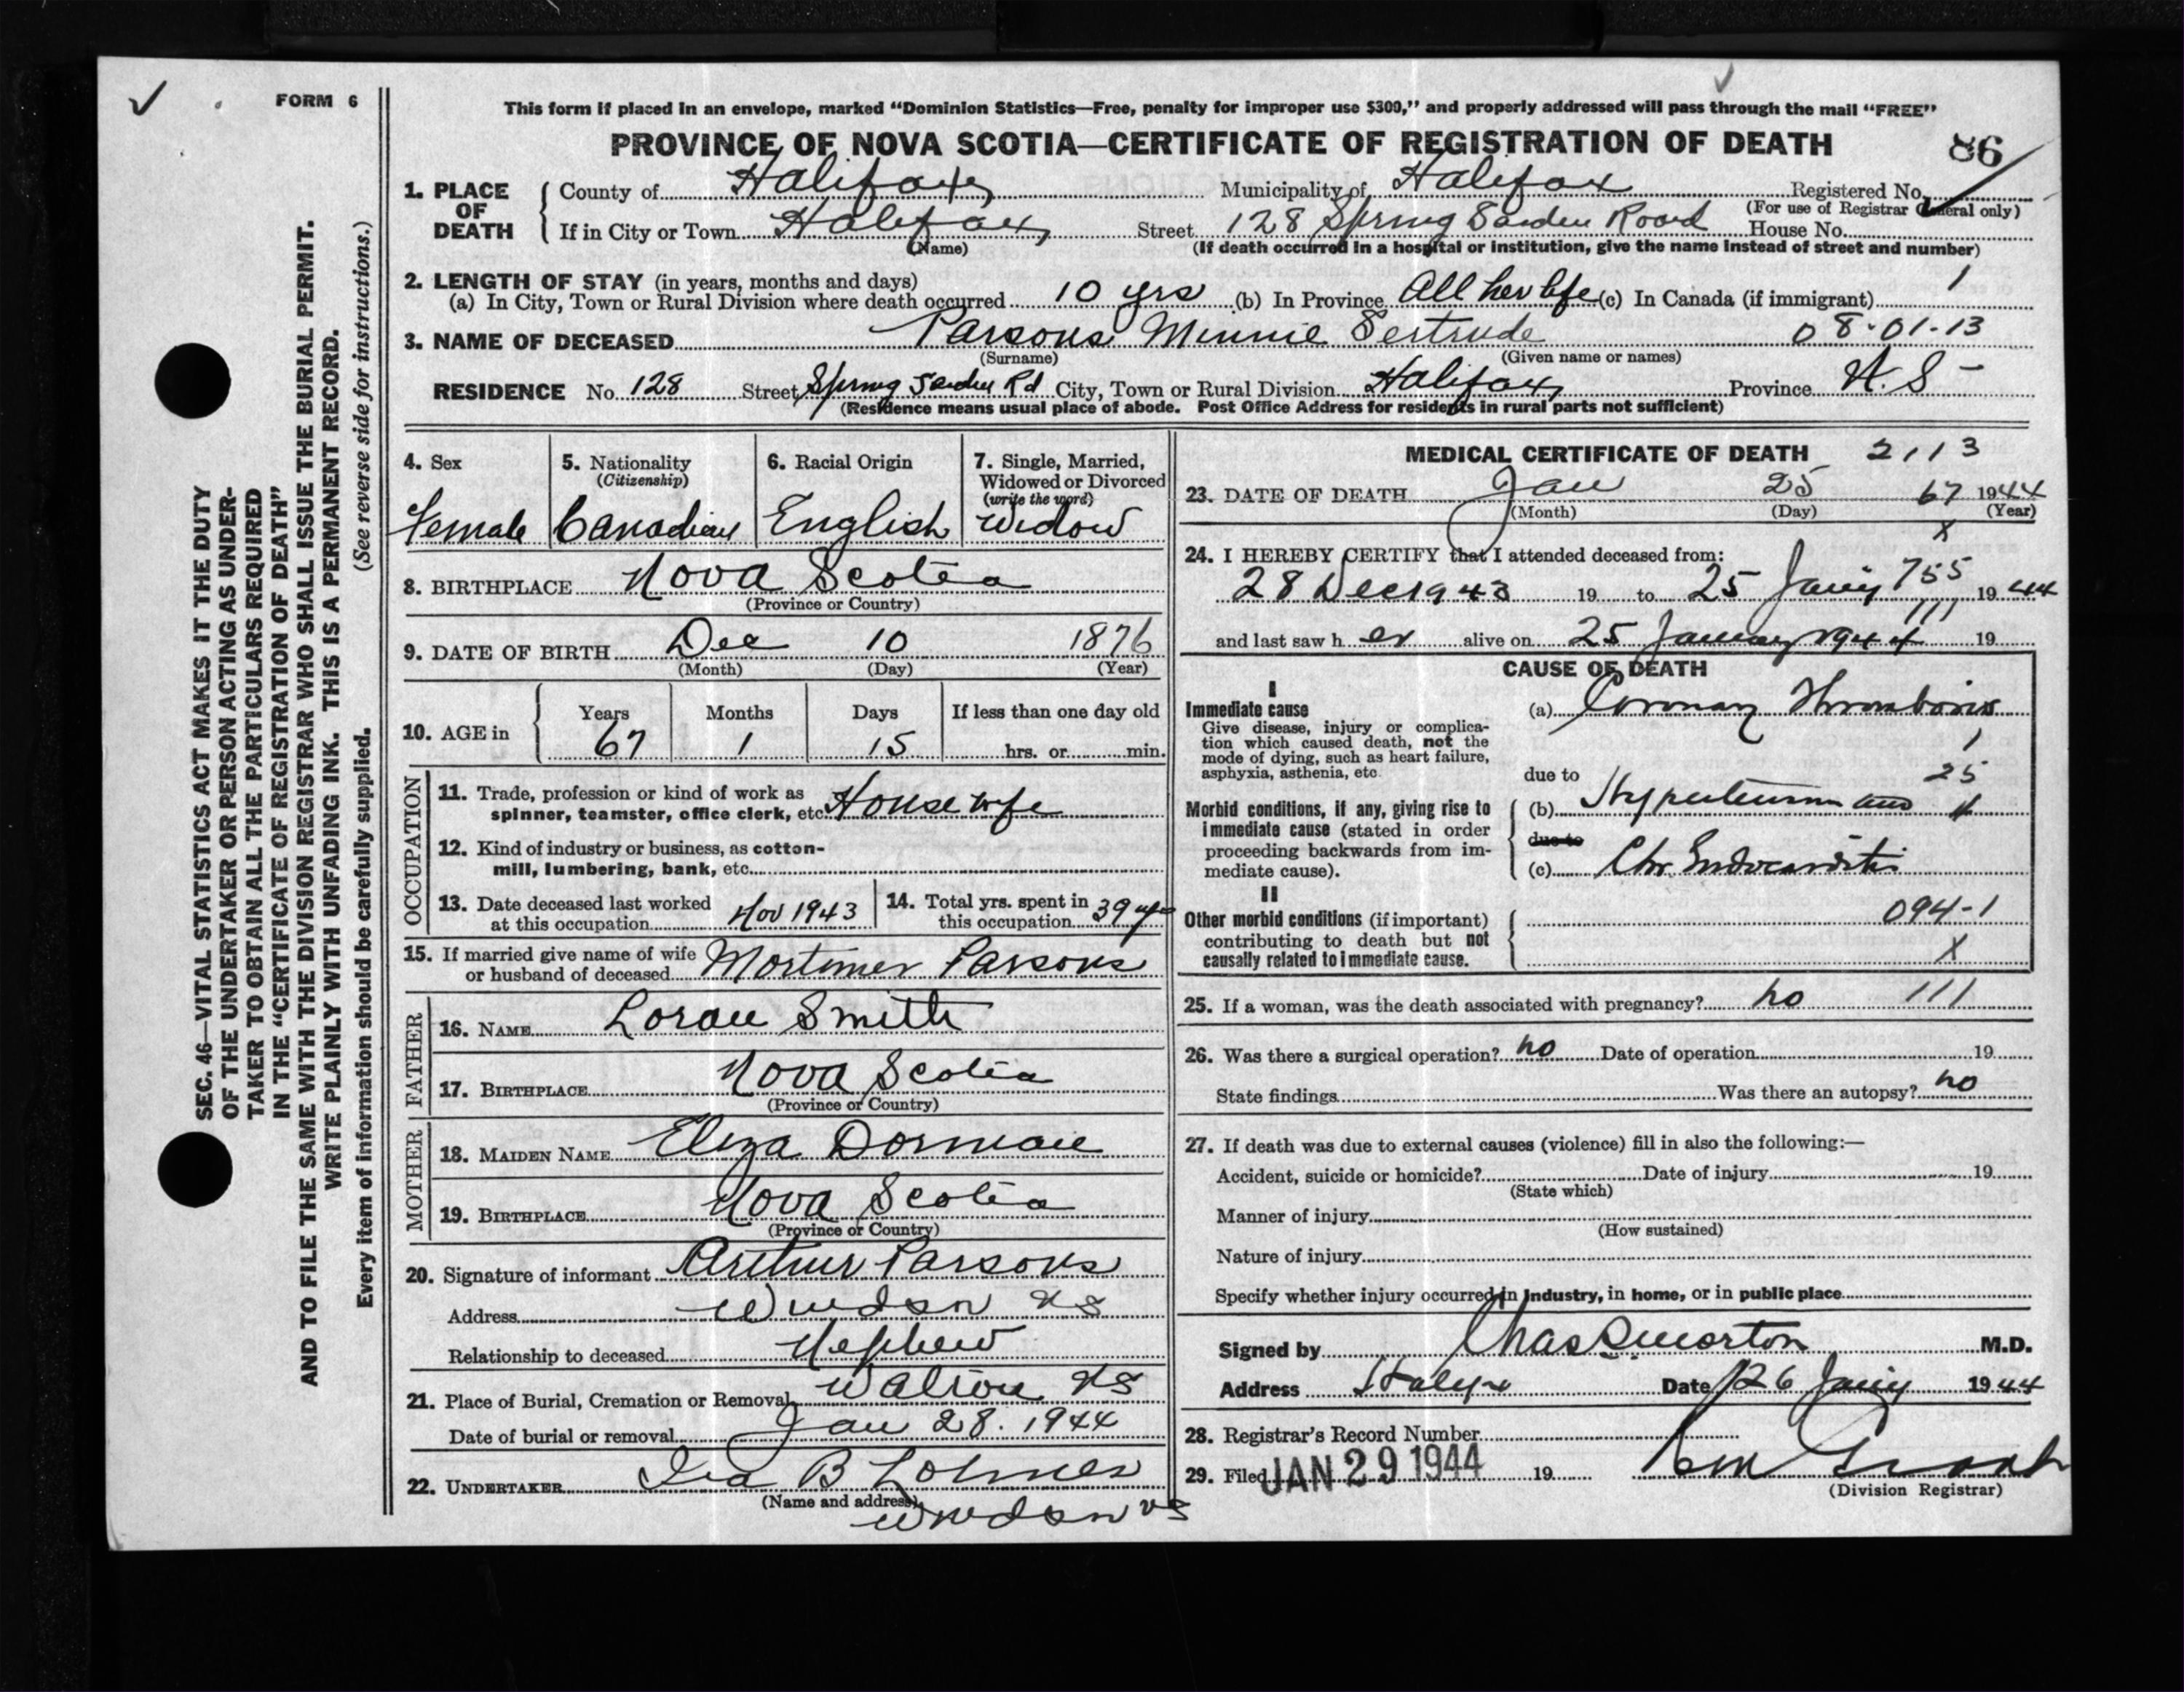 FORM 6
This form if placed in an envelope, marked "Dominion Statistics—Free, penalty for improper use $300," and properly addressed will pass through the mail "FREE"
PROVINCE OF NOVA SCOTIA—CERTIFICATE OF REGISTRATION OF DEATH
86
1. PLACE OF DEATH
County of Halifax Municipality of Halifax Registered No.
(For use of Registrar General only)
If in City or Town Halifax Street 128 Spring Garden Road House No.
(Name) (If death occurred in a hospital or institution, give the name instead of street and number)
2. LENGTH OF STAY (in years, months and days)
(a) In City, Town or Rural Division where death occurred 10 yrs (b) In Province All her life (c) In Canada (if immigrant) 1
3. NAME OF DECEASED Parsons Minnie Gertrude 08-01-13
(Surname) (Given name or names)
RESIDENCE No. 128 Street Spring Garden Rd City, Town or Rural Division Halifax Province N.S-
(Residence means usual place of abode. Post Office Address for residents in rural parts not sufficient)
4. Sex
Female
5. Nationality
(Citizenship)
Canadian
6. Racial Origin
English
7. Single, Married,
Widowed or Divorced
(write the word)
Widow
8. BIRTHPLACE Nova Scotia
(Province or Country)
9. DATE OF BIRTH Dec 10 1876
(Month) (Day) (Year)
10. AGE in Years Months Days If less than one day old
67 1 15 hrs. or min.
OCCUPATION
11. Trade, profession or kind of work as
spinner, teamster, office clerk, etc. Housewife
12. Kind of industry or business, as cotton-
mill, lumbering, bank, etc.
13. Date deceased last worked
at this occupation Nov 1943
14. Total yrs. spent in
this occupation 39 yrs
15. If married give name of wife
or husband of deceased Mortimer Parsons
FATHER
16. NAME Loran Smith
17. BIRTHPLACE Nova Scotia
(Province or Country)
MOTHER
18. MAIDEN NAME Eliza Dorman
19. BIRTHPLACE Nova Scotia
(Province or Country)
20. Signature of informant Arthur Parsons
Address Windsor NS
Relationship to deceased Nephew
21. Place of Burial, Cremation or Removal Walton NS
Date of burial or removal Jan 28. 1944
22. UNDERTAKER Ira B
(Name and address)
Windsor NS
MEDICAL CERTIFICATE OF DEATH 2113
23. DATE OF DEATH Jan 25 67 1944
(Month) (Day) (Year)
X
24. I HEREBY CERTIFY that I attended deceased from:
28 Dec 1943 19 to 25 Jany 755 1944
111
and last saw her alive on 25 January 1944 19
CAUSE OF DEATH
I
Immediate cause
Give disease, injury or complica-
tion which caused death, not the
mode of dying, such as heart failure,
asphyxia, asthenia, etc.
(a) Coronary Thrombosis
1
due to 25
Morbid conditions, if any, giving rise to
immediate cause (stated in order
proceeding backwards from im-
mediate cause).
(b) Hypertension and
due to
(c) Chr. Endocarditis
II
Other morbid conditions (if important)
contributing to death but not
causally related to immediate cause.
094-1
X
25. If a woman, was the death associated with pregnancy? no 111
26. Was there a surgical operation? no Date of operation 19
State findings Was there an autopsy? no
27. If death was due to external causes (violence) fill in also the following:—
Accident, suicide or homicide? Date of injury 19
(State which)
Manner of injury
(How sustained)
Nature of injury
Specify whether injury occurred in industry, in home, or in public place
Signed by Chas S Morton M.D.
Address Halifax Date 26 Jany 1944
28. Registrar's Record Number
29. Filed JAN 29 1944 19
(Division Registrar)
SEC. 46—VITAL STATISTICS ACT MAKES IT THE DUTY
OF THE UNDERTAKER OR PERSON ACTING AS UNDER-
TAKER TO OBTAIN ALL THE PARTICULARS REQUIRED
IN THE "CERTIFICATE OF REGISTRATION OF DEATH"
AND TO FILE THE SAME WITH THE DIVISION REGISTRAR WHO SHALL ISSUE THE BURIAL PERMIT.
WRITE PLAINLY WITH UNFADING INK. THIS IS A PERMANENT RECORD.
Every item of information should be carefully supplied. (See reverse side for instructions.)